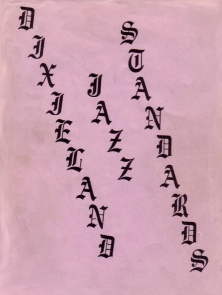 DIXIELAND
JAZZ
STANDARDS